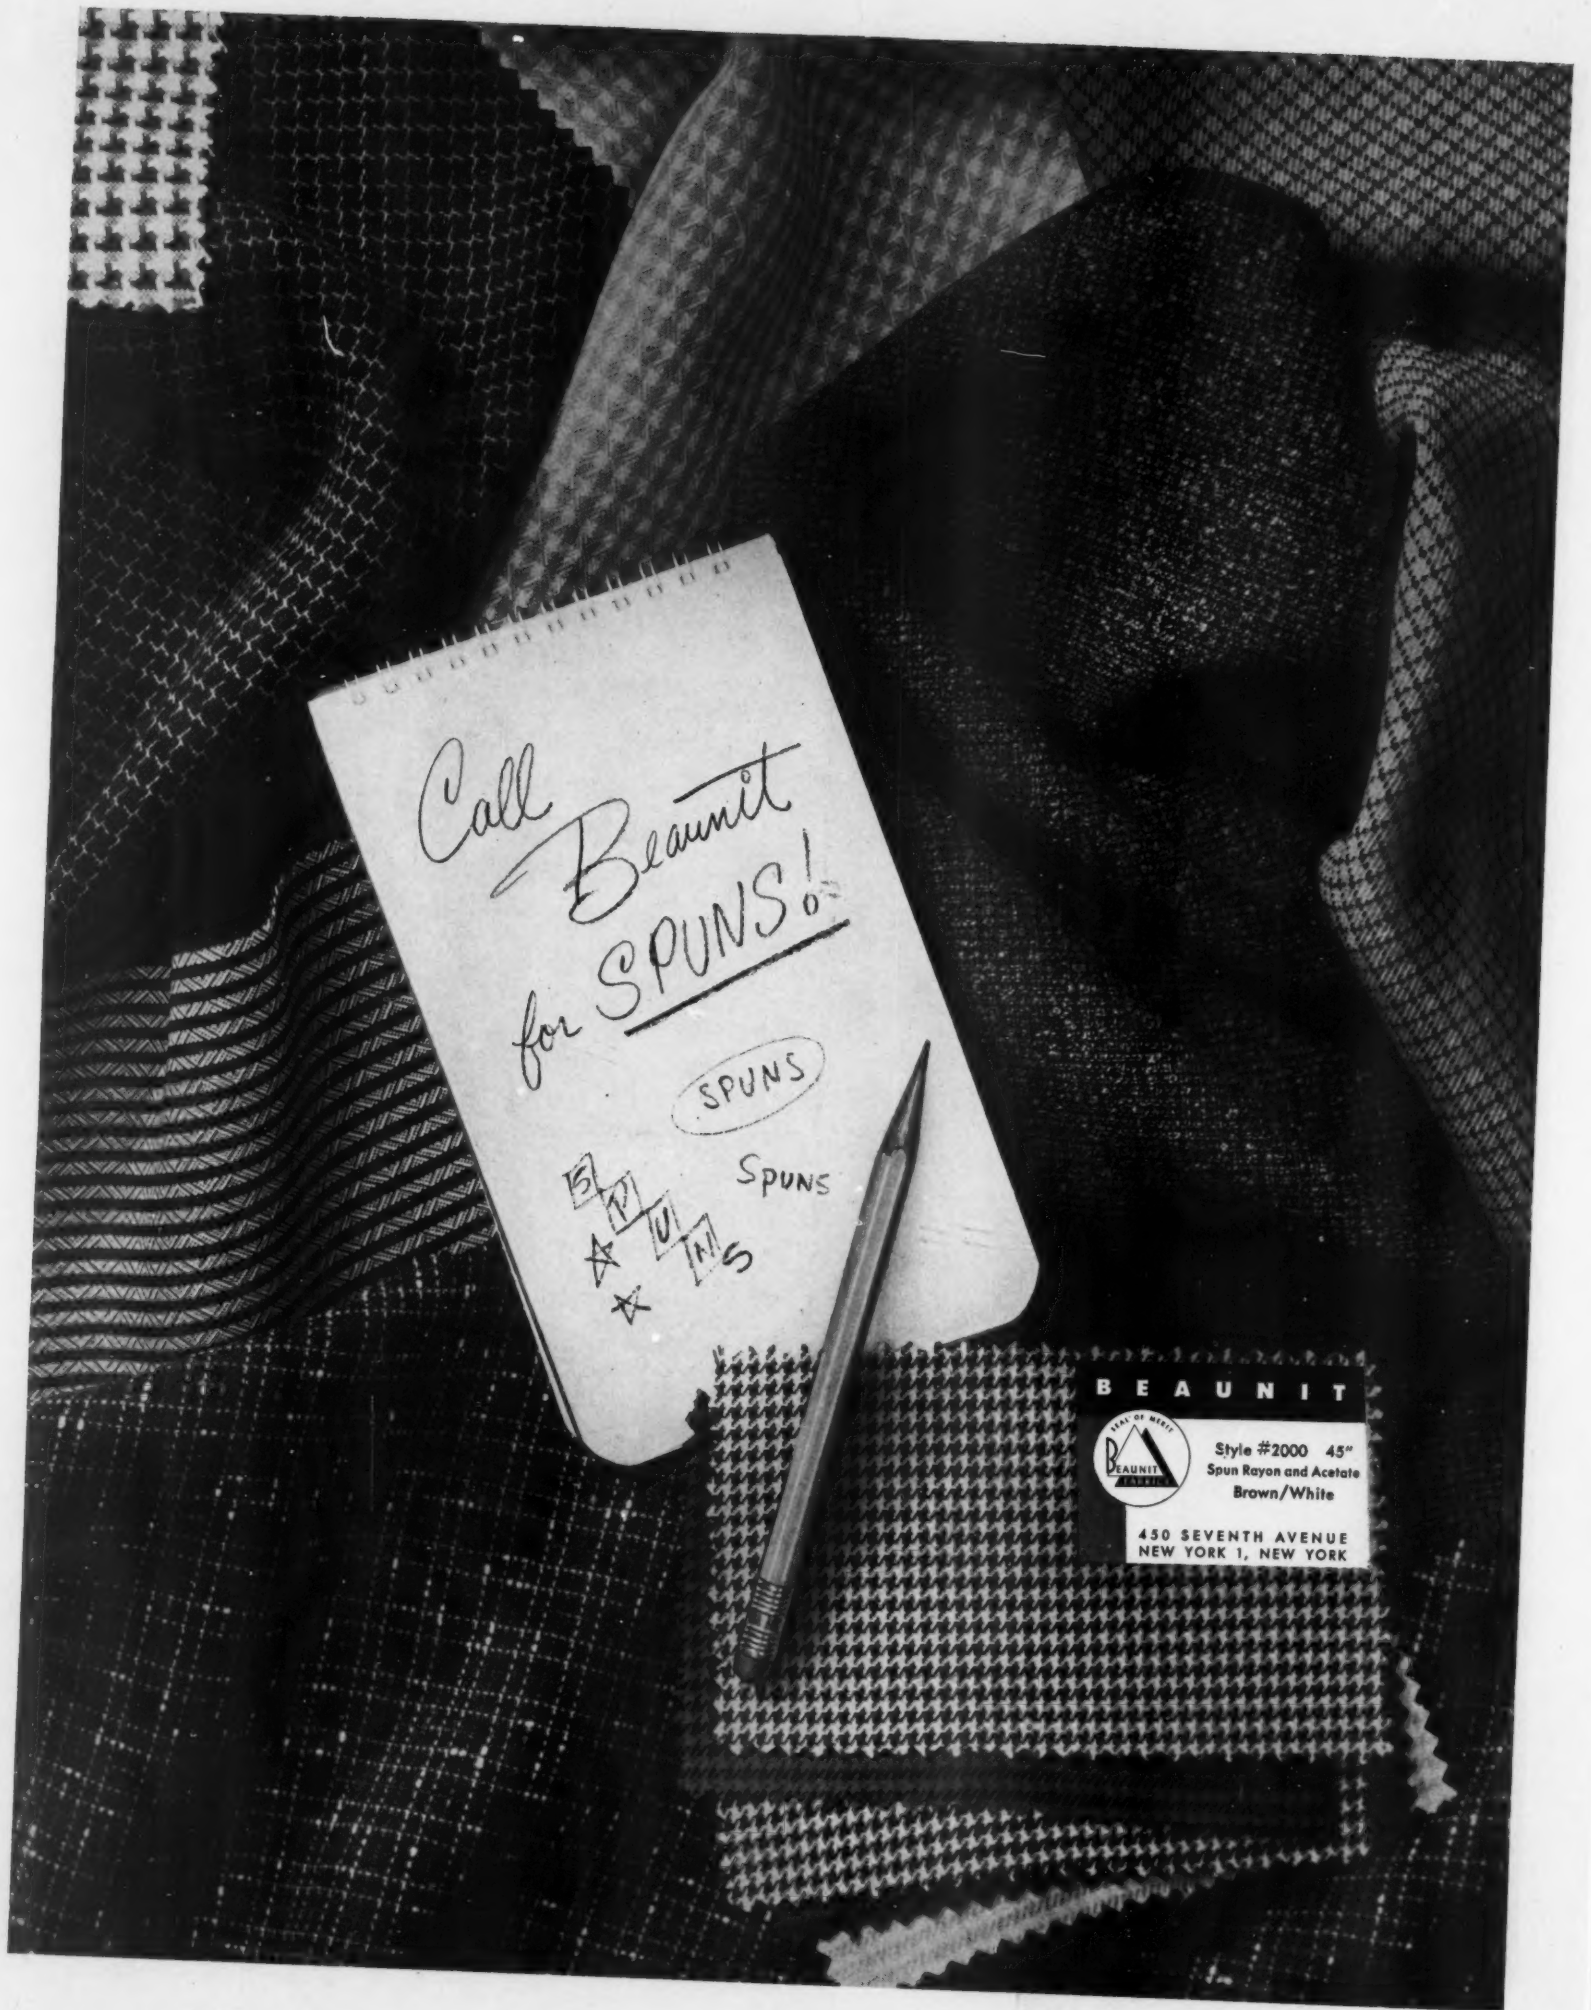 Call
Beaunit
for SPUNS!
SPUNS
Spuns
SPUNS
BEAUNIT
SEAL OF MERIT
BEAUNIT
FABRICS
Style #2000 45"
Spun Rayon and Acetate
Brown/White
450 SEVENTH AVENUE
NEW YORK 1, NEW YORK